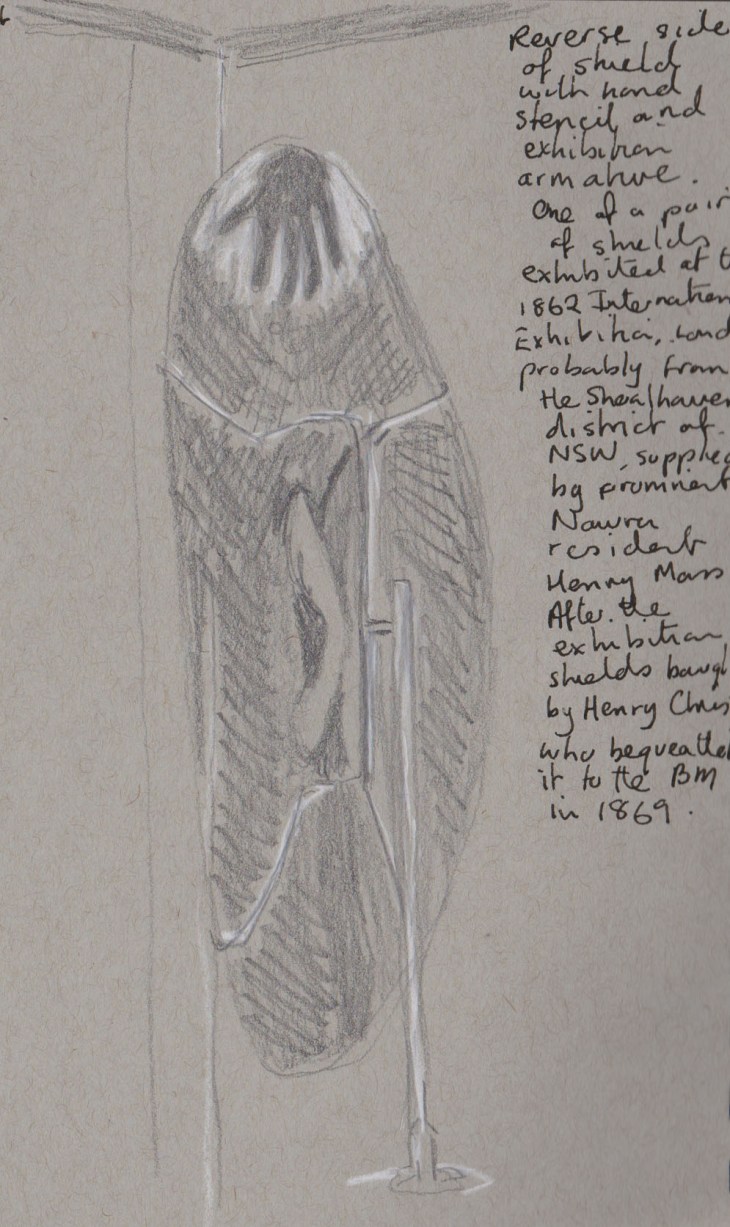 Reverse side
of shield
with hand
stencil and
exhibition
armature.
One of a pair
of shields
exhibited at t
1862 Internation
Exhibition, Lond
probably from
the Shoalhaven
district of
NSW, supplied
by prominent
Nowra
resident
Henry Moss
After the
exhibition
shields bough
by Henry Chris
who bequeathed
it to the BM
in 1869.